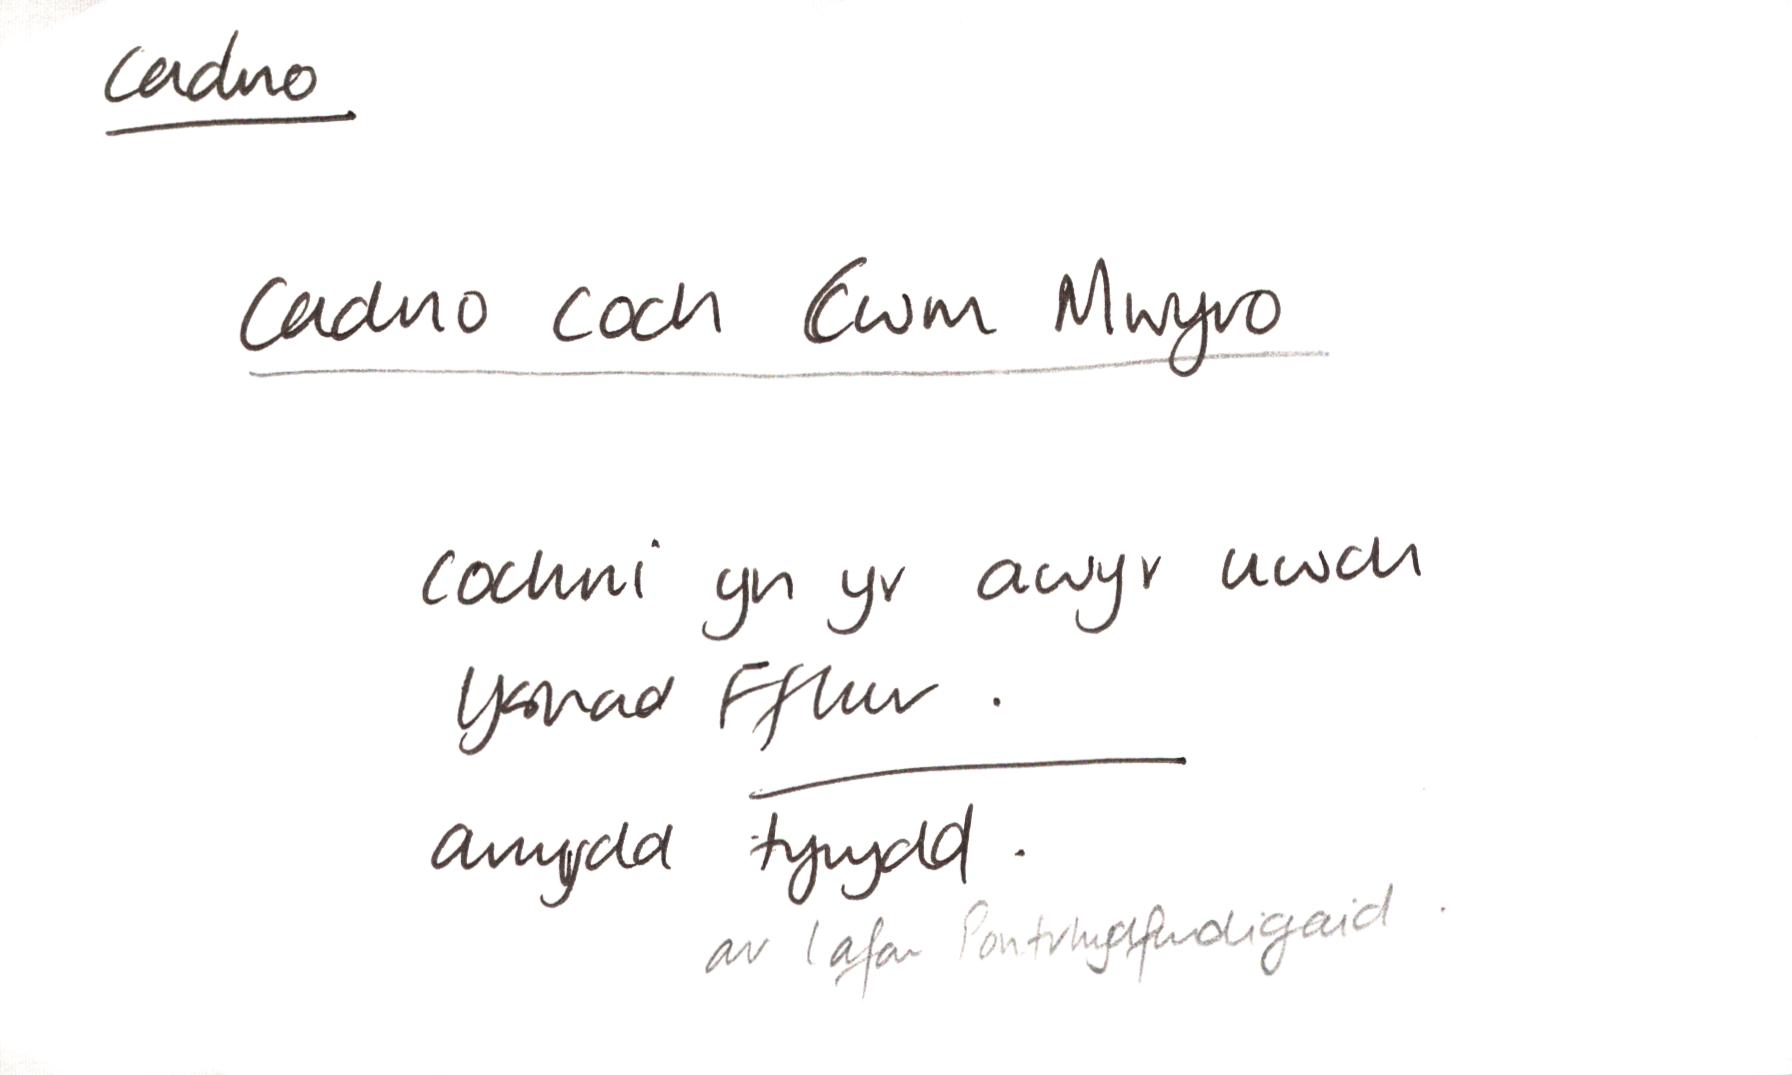 Cadno
Cadno coch Cwm Mwyro
Cochni yn yr awyr uwch
Ystrad Fflur .
arwydd tywydd .
ar lafar Pontrhydfendigaid .